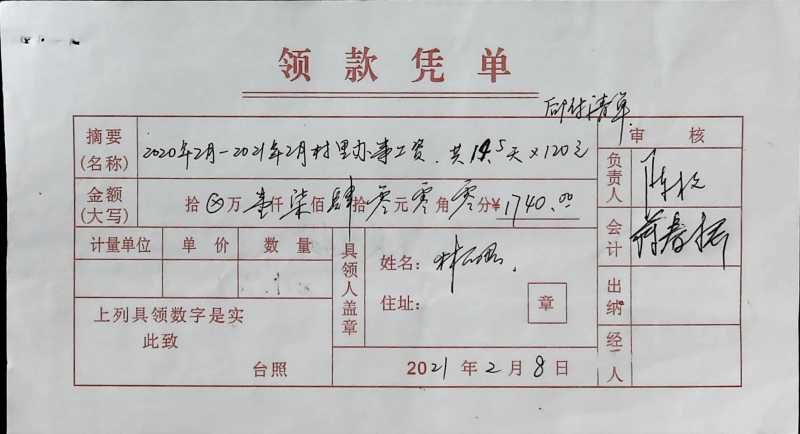 领款凭单
后附清单
摘要(名称) 2020年2月-2021年2月村里办事工资.共14.5天×120元
审核
金额(大写) 拾⊗万壹仟柒佰肆拾零元零角零分¥1740.00
负责人
会计
计量单位 单价 数量
具领人盖章
姓名:
住址: 章
出纳
上列具领数字是实
此致
台照
2021年2月8日
经人